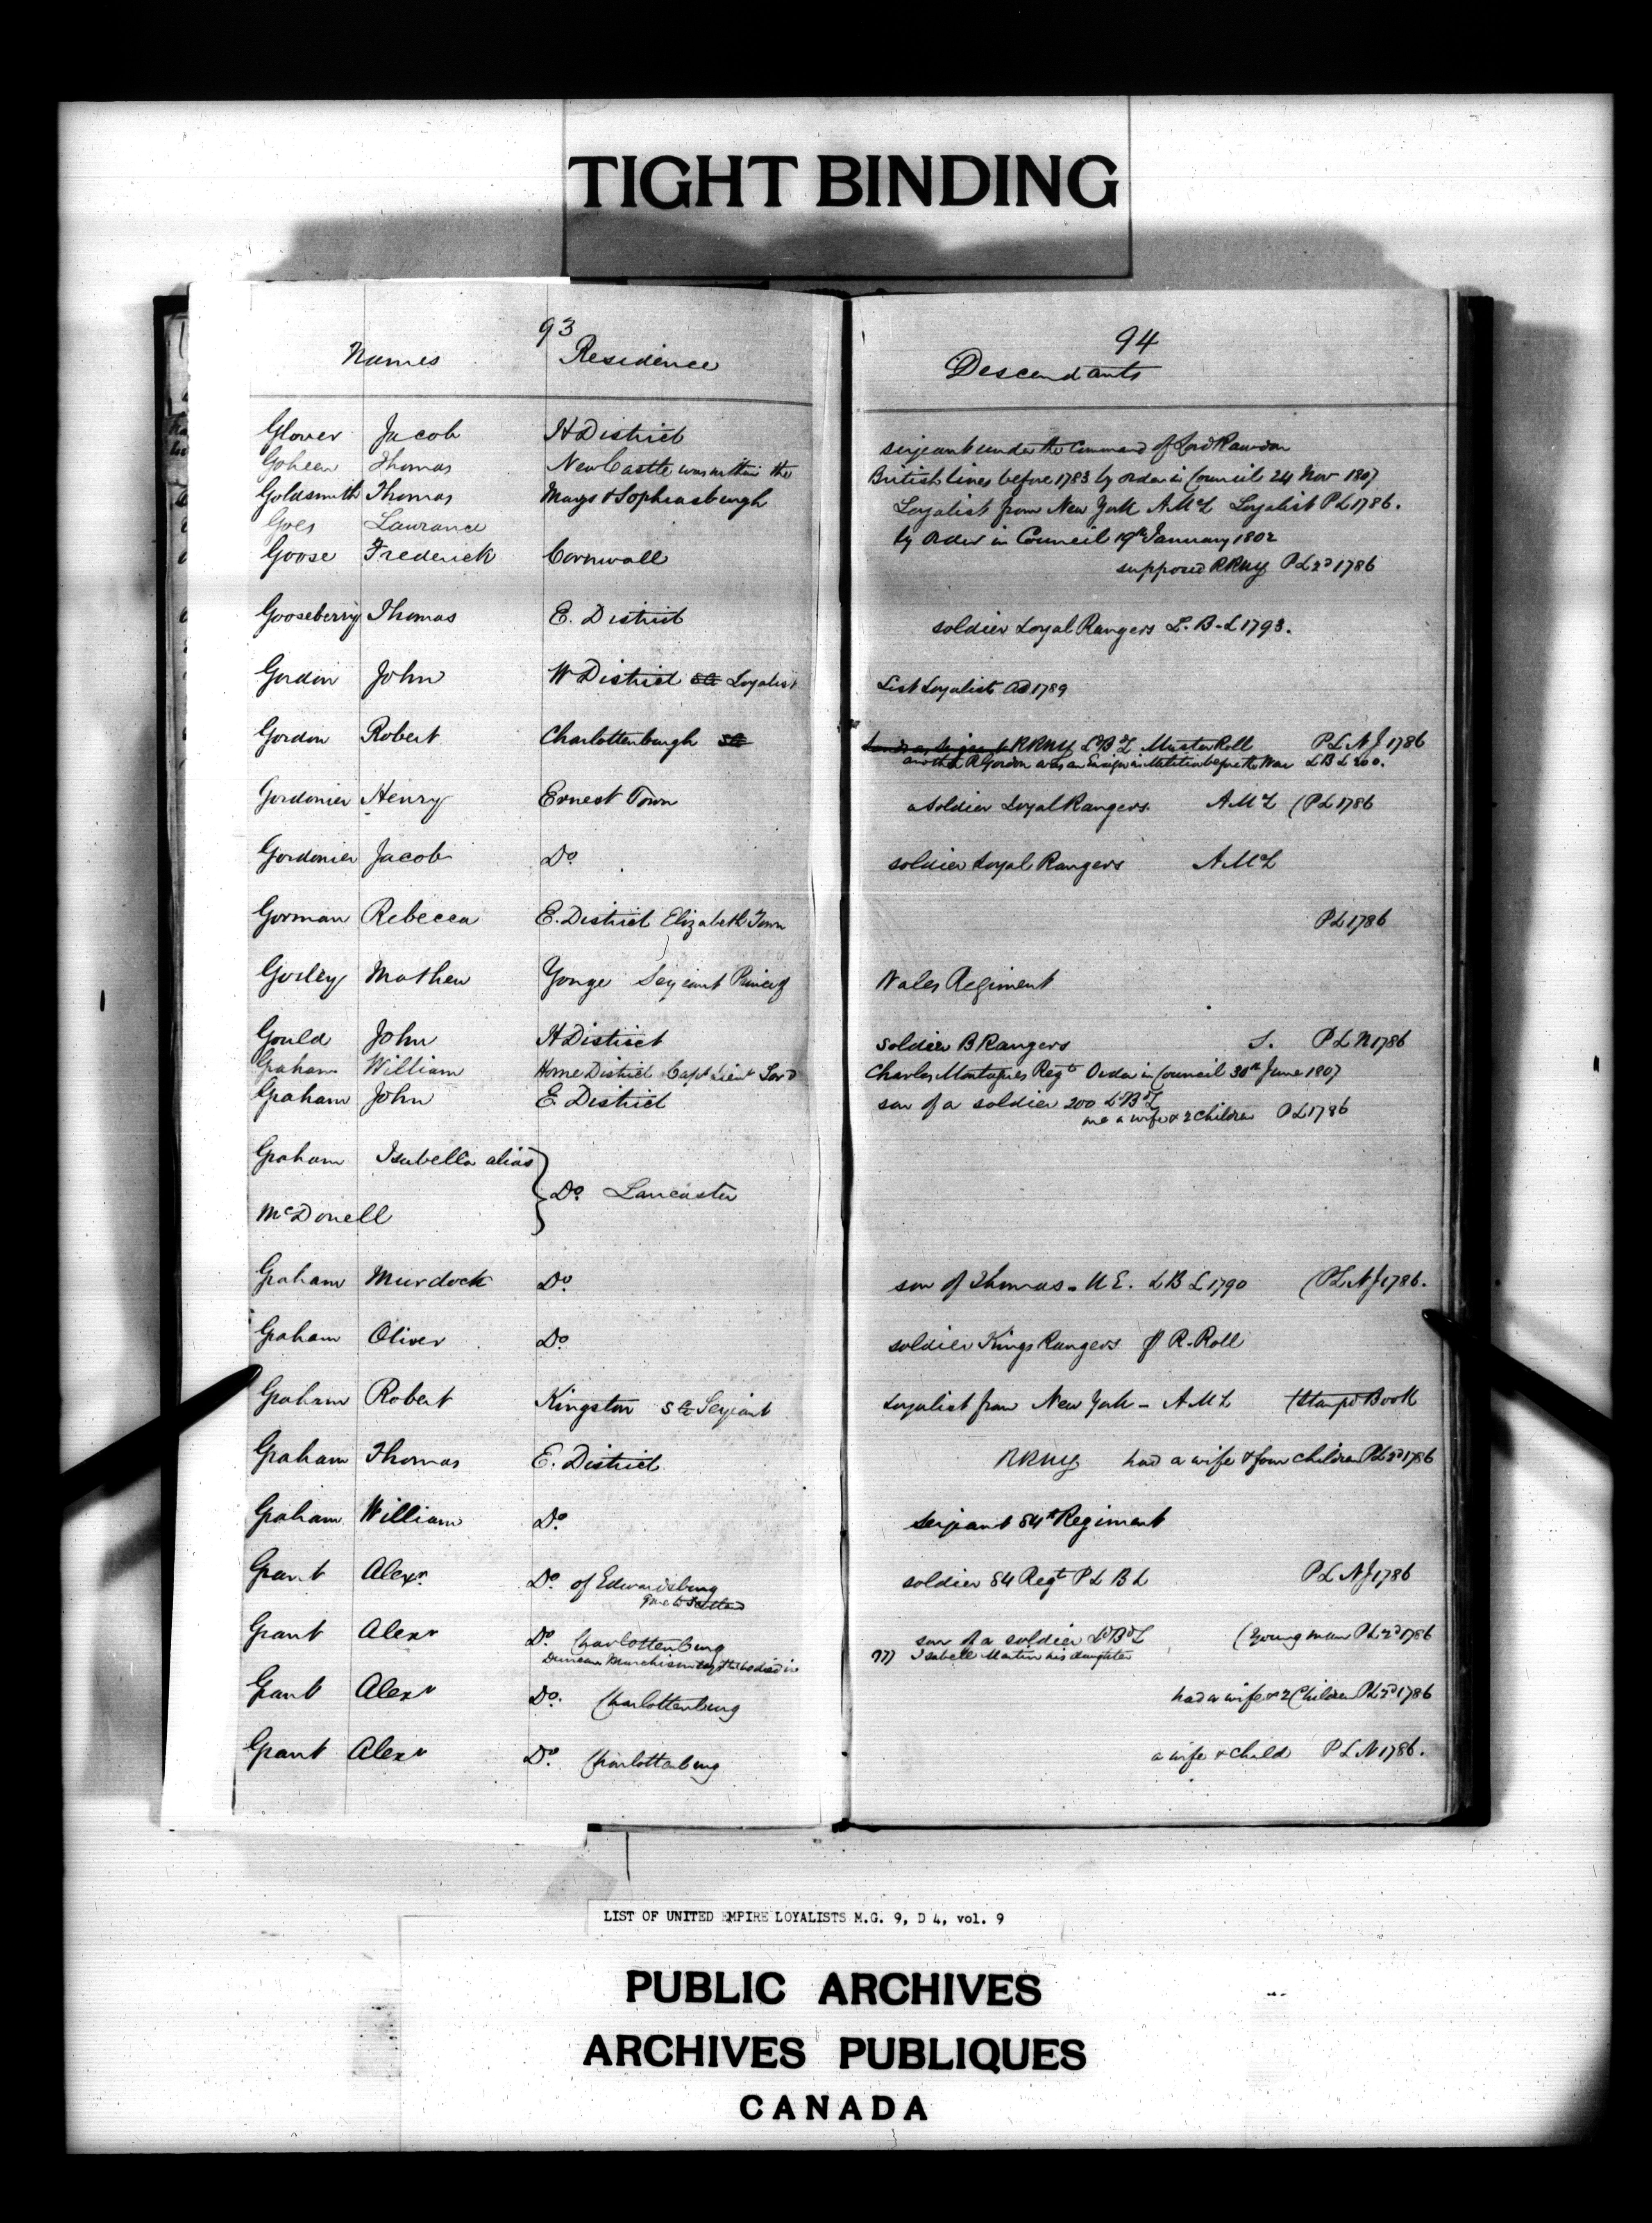 TIGHT BINDING
93
94
Names Residence
Descendants
Glover Jacob H District serjeant under the Command of Lord Rawdon
Goheen Thomas NewCastle was within the British lines before 1783 by order in Council 24 Nov 1807
Goldsmith Thomas Mays & Sophiasburgh Loyalist from New York A.M.L Loyalist P L 1786.
Goes Laurance by Order in Council 19th January 1802
Goose Frederick Cornwall supposed RRNY P L 2d 1786
Gooseberry Thomas E. District soldier Loyal Rangers L. B. L 1793.
Gordon John W District Loyalist List Loyalists 1789
Gordon Robert Charlottenburgh RRNY L B L Muster Roll P L N J 1786
another R Gordon was an Ensign in Militia before the War L B L 200.
Gordonier Henry Ernest Town a soldier Loyal Rangers. A M L (P L 1786
Gordonier Jacob Do soldier Loyal Rangers A M L
Gorman Rebecca E. District Elizabeth Town P L 1786
Gosley Mathew Yonge Serjeant Prince of Wales Regiment
Gould John H District soldier B Rangers S. P L N 1786
Graham William Home District Capt Lieut Lord Charles Montagues Regt Order in Council 30th June 1807
Graham John E District son of a soldier 200 L B L
me a wife & 2 children P L 1786
Graham Isabella alias
Do Lancaster
McDonell
Graham Murdock Do son of Thomas. U E. L B L 1790 (P L N J 1786.
Graham Oliver Do soldier Kings Rangers R. Roll
Graham Robert Kingston Serjeant Loyalist from New York - A M L (Stamp'd Book
Graham Thomas E. District RRNY had a wife & four children P L 2d 1786
Graham William Do serjeant 84th Regiment
Grant Alexr Do of Edwardsburg soldier 84 Regt P L B L P L N J 1786
gone to Scotland
Grant Alexr Do Charlottenburg son of a soldier L B L (young man P L 2d 1786
Duncan Murchison says that he died in 1777 Isabelle Martin his daughter
Grant Alexr Do. Charlottenburg had a wife & 2 Children P L 2d 1786
Grant Alexr Do. Charlottenburg a wife & child P L N 1786.
LIST OF UNITED EMPIRE LOYALISTS M.G. 9, D 4, vol. 9
PUBLIC ARCHIVES
ARCHIVES PUBLIQUES
CANADA